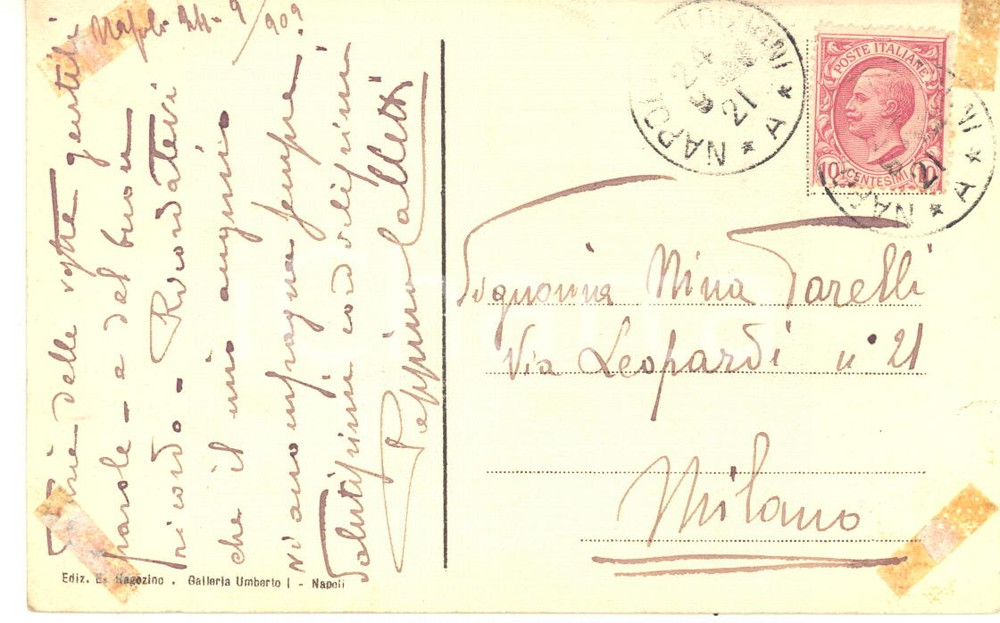 Napoli 24-9/909
Grazie delle vostre gentili
parole - e del buon
ricordo - Ricordatevi
che il mio augurio
vi accompagna sempre!
Salutissimi cordialissimi
Peppino
Signorina Nina Tarelli
Via Leopardi n° 21
Milano
POSTE ITALIANE
10 CENTESIMI 10
NAPOLI
24 9
21
* A *
NAPOLI
21
* A *
Ediz. E. Ragozino . Galleria Umberto I - Napoli